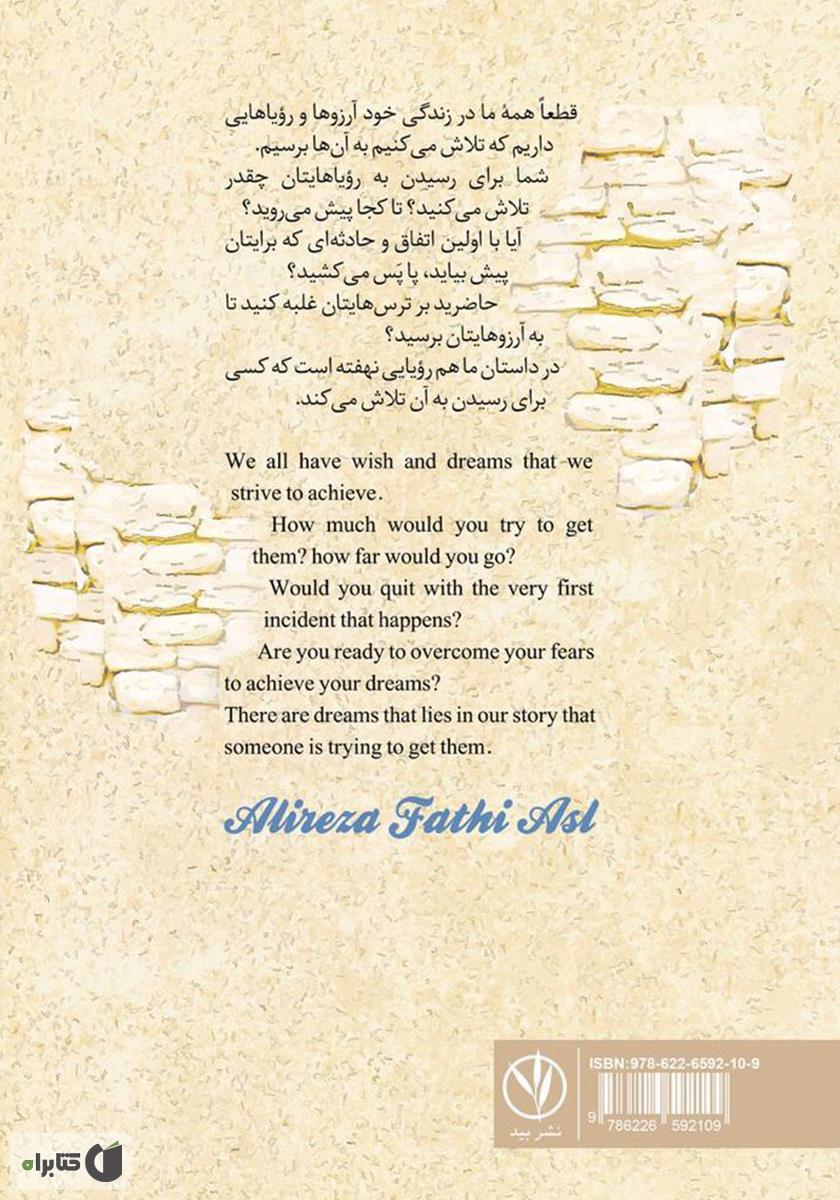 قطعاً همهٔ ما در زندگی خود آرزوها و رؤیاهایی
داریم که تلاش می‌کنیم به آن‌ها برسیم.
شما برای رسیدن به رؤیاهایتان چقدر
تلاش می‌کنید؟ تا کجا پیش می‌روید؟
آیا با اولین اتفاق و حادثه‌ای که برایتان
پیش بیاید، پا پَس می‌کشید؟
حاضرید بر ترس‌هایتان غلبه کنید تا
به آرزوهایتان برسید؟
در داستان ما هم رؤیایی نهفته است که کسی
برای رسیدن به آن تلاش می‌کند.
We all have wish and dreams that we
strive to achieve.
How much would you try to get
them? how far would you go?
Would you quit with the very first
incident that happens?
Are you ready to overcome your fears
to achieve your dreams?
There are dreams that lies in our story that
someone is trying to get them.
Alireza Fathi Asl
ISBN:978-622-6592-10-9
9 786226 592109
نشر بید
کتابراه